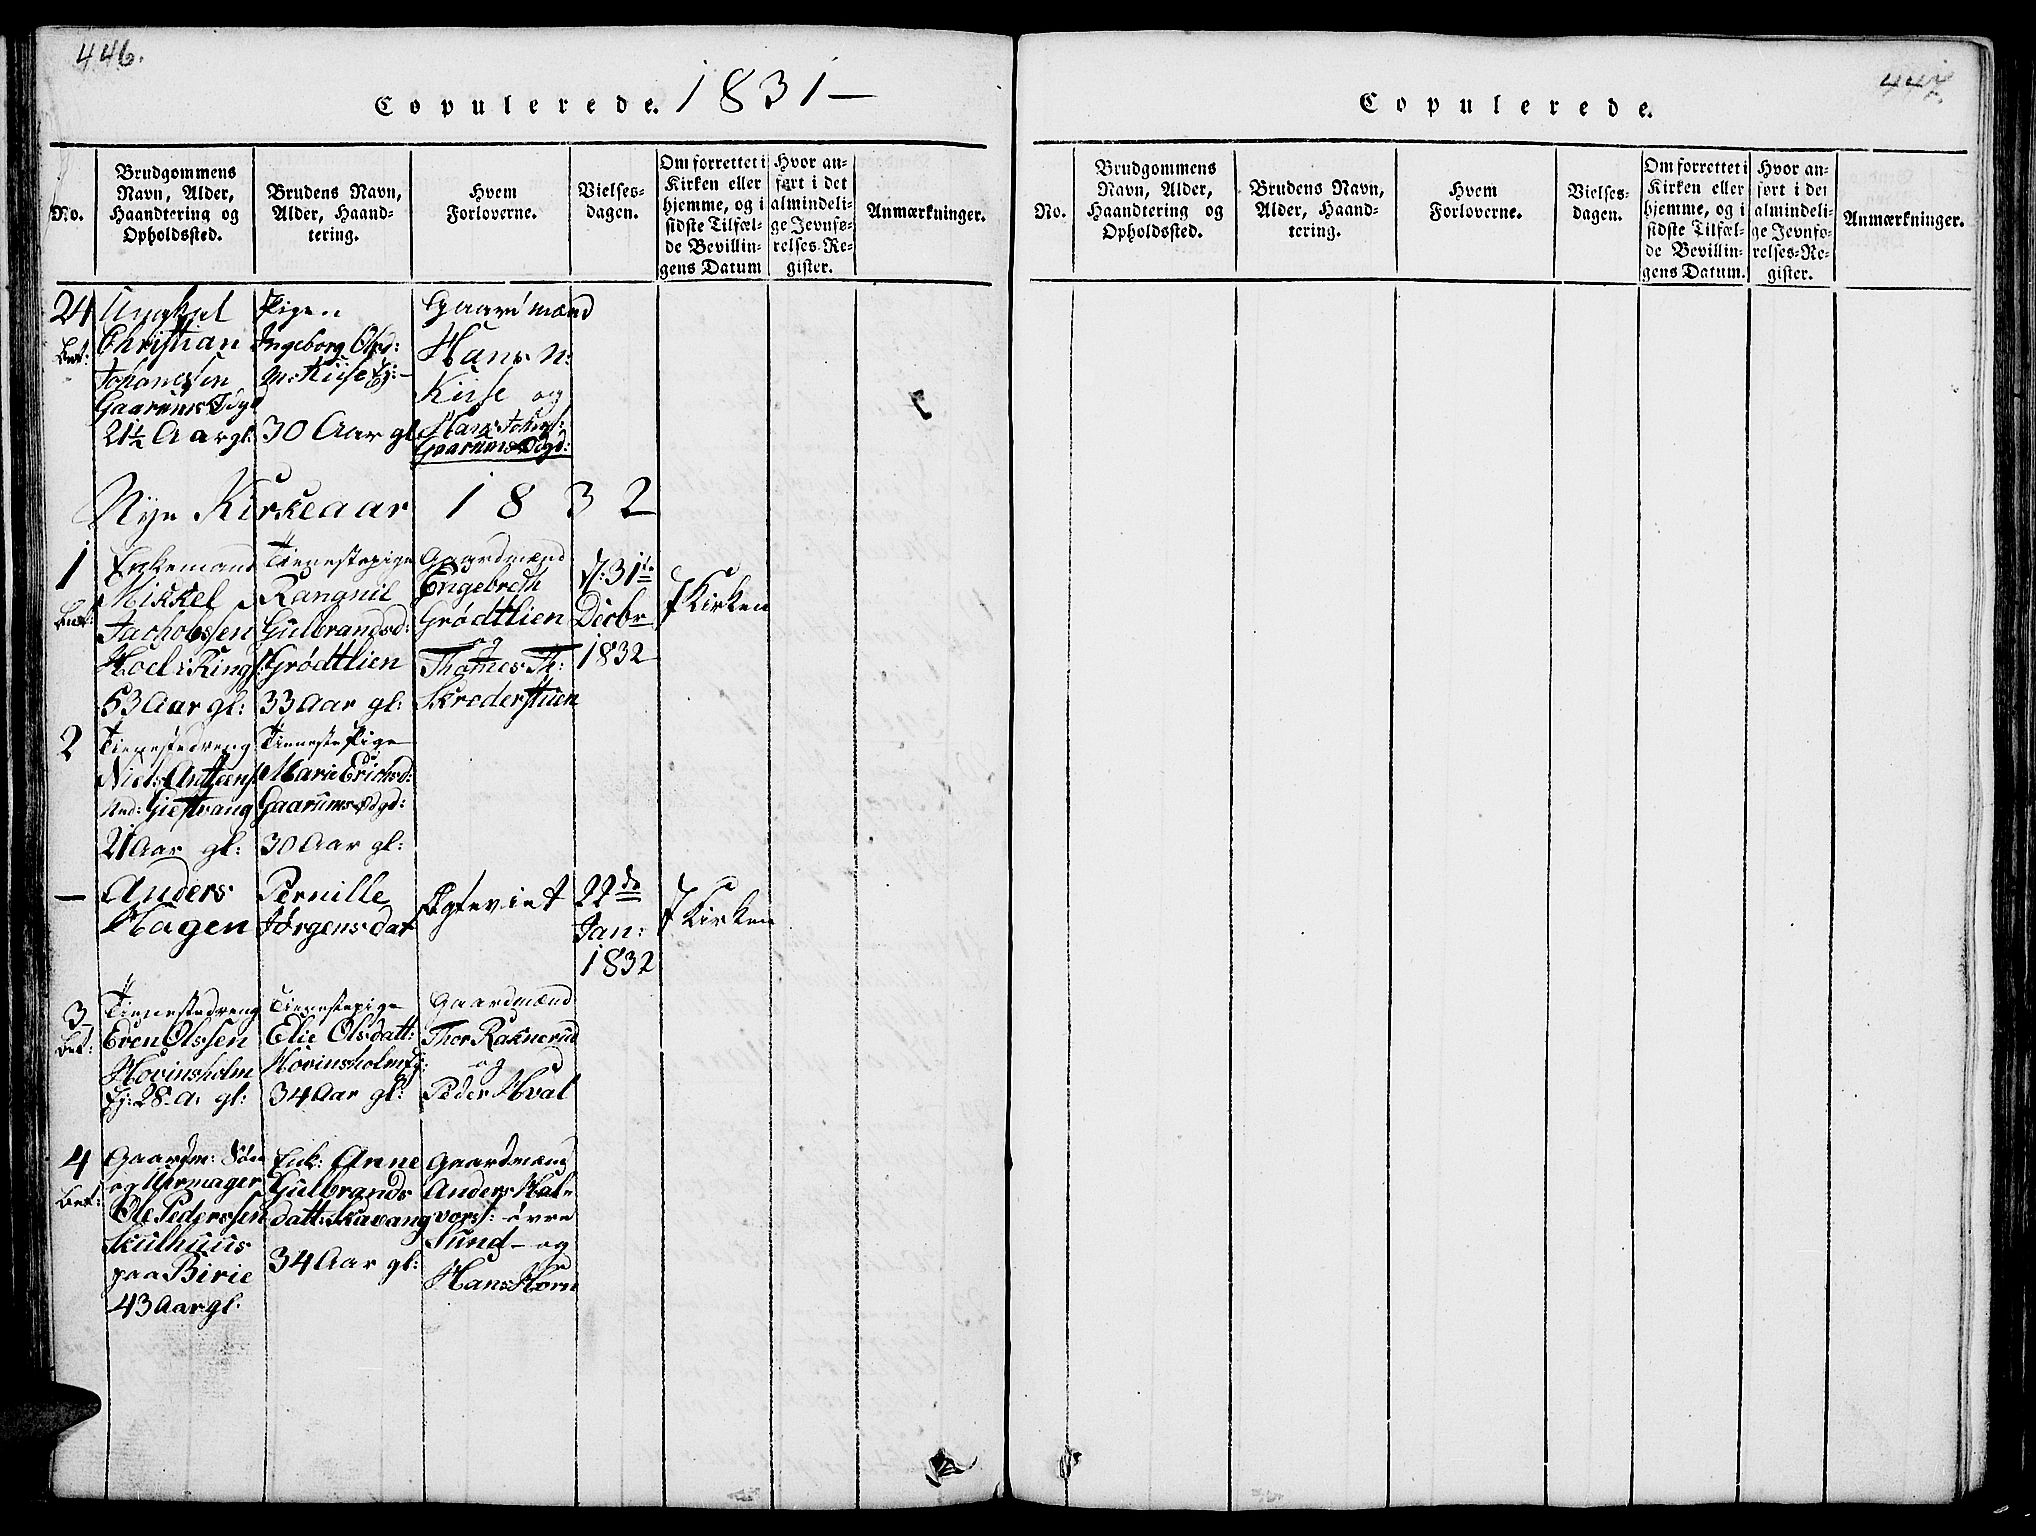 446.
Copulerede. 1831 —
No.
Brudgommens Navn, Alder, Haandtering og Opholdssted.
Brudens Navn, Alder, Haandtering.
Hvem Forloverne.
Vielses-dagen.
Om forrettet i Kirken eller hjemme, og i sidste Tilfælde Bevillingens Datum
Hvor anført i det almindelige Jevnførelses-Register.
Anmærkninger.
24
Bet:
Ungkarl
Christian
Johanessen
Gaarums Dgd
21½ Aar gl:
Pigen
Ingeborg Olsd:
N: Kiise Ej:
30 Aar gl
Gaardmænd
Hans N:
Kiise og
Hans Johns:
Gaarums Digd:
Nye Kirkeaar 1832
1
Bet:
Enkemand
Mikkel
Jachobssen
Hoel i Rings
53 Aar gl:
Tienestepige
Rangnil
Gulbrandsd:
Grødtlien
33 Aar gl:
Gaardmænd
Engebreth
Grødtlien
og
Thomes Th:
Skroderstuen
d: 31te
Decbr
1832
I Kirken
2
Tienestedreng
Niels Anttons
And: Giestvang
21 Aar gl:
Tieneste Pige
Marie Erichsd:
Gaarums Ødgd:
30 Aar gl:
—
Anders
Hagen
Pernille
Jørgensdat
Egteviet
22de
Jan:
1832
I Kirken
3
Bet:
Tienestedreng
Even Olssen
Hovinsholm
Ej: 28 A. gl:
Tienestepige
Elie Olsdatt:
Hovinsholm Ej:
34 Aar gl:
Gaardmænd
Thor Raknerud
og
Peder Hval
4
Bet:
Gaardm: Søn
og Uhrmager
Ole Pederssen
Skulhuus
paa Birie
43 Aar gl:
Enk: Anne
Gulbrands
datt: Skavang
34 Aar gl:
Gaardmænd
Anders Hal-
vors: øvre
Sund — og
Hans Horn
447.
Copulerede.
No.
Brudgommens Navn, Alder, Haandtering og Opholdssted.
Brudens Navn, Alder, Haandtering.
Hvem Forloverne.
Vielses-dagen.
Om forrettet i Kirken eller hjemme, og i sidste Tilfælde Bevillingens Datum.
Hvor anført i det almindelige Jevnførelses-Register.
Anmærkninger.